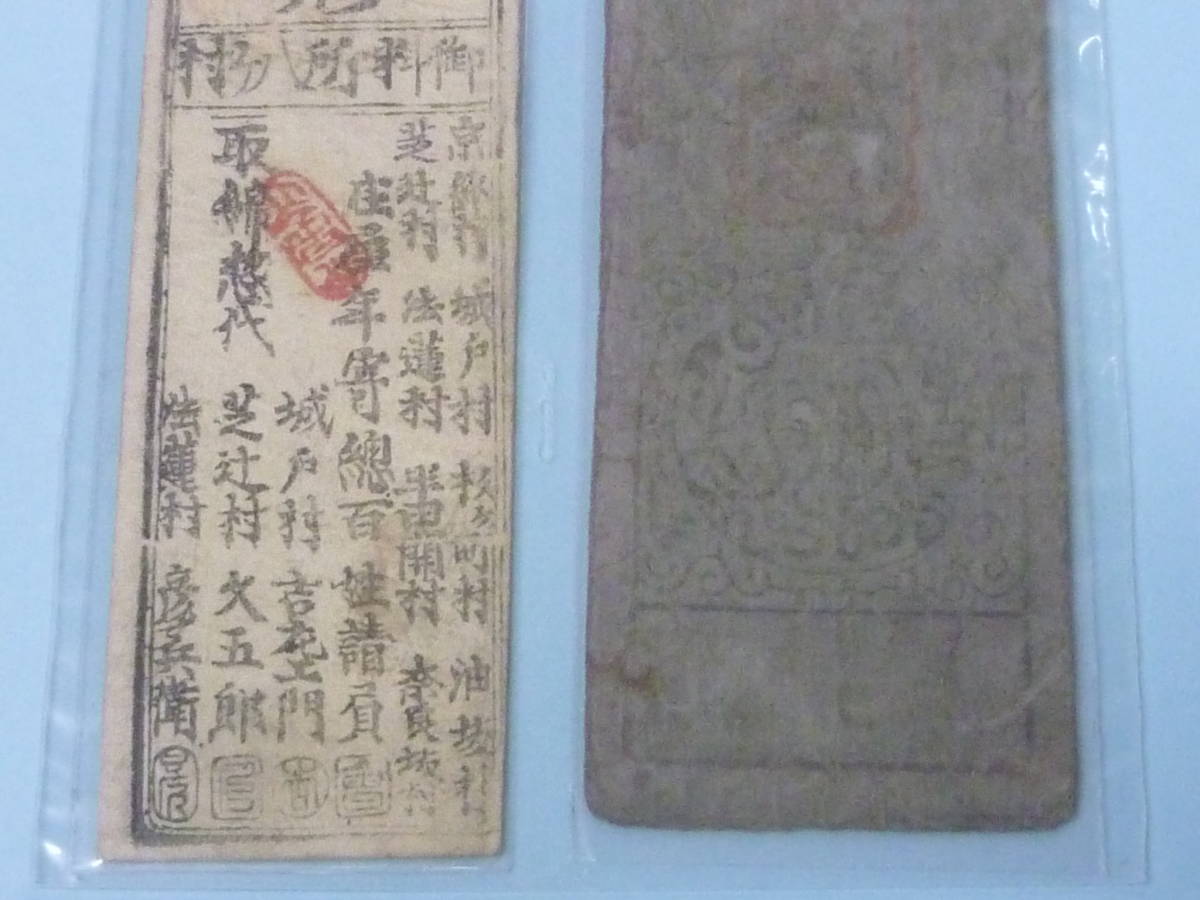 御料所
村
京終村 城戸村 杉ヶ町村 油坂村
芝辻村 法蓮村 半田開村 奈良坂村
庄屋年寄總百姓請負
城戸村 吉左エ門
芝辻村 久五郎
取締惣代
法蓮村 彦兵衛